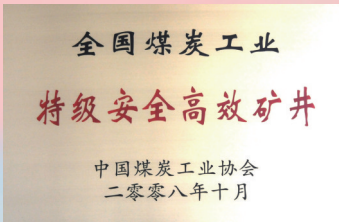 全国煤炭工业
特级安全高效矿井
中国煤炭工业协会
二零零八年十月